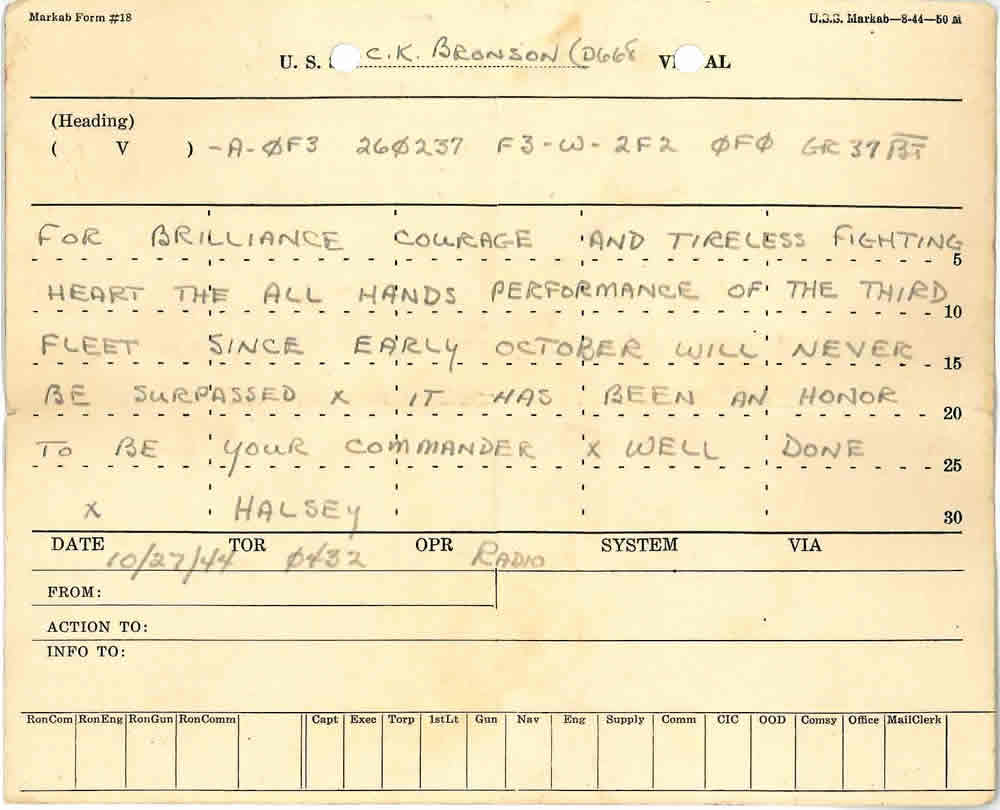 Markab Form #18 U.S.S. Markab—8-44—50 M
U. S. S. C.K. BRONSON (DG68 VI AL
(Heading)
( V ) -A-ØF3 26Ø237 F3-W-2F2 ØFØ GR 37 BT
FOR BRILLIANCE COURAGE AND TIRELESS FIGHTING 5
HEART THE ALL HANDS PERFORMANCE OF THE THIRD 10
FLEET SINCE EARLY OCTOBER WILL NEVER 15
BE SURPASSED X IT HAS BEEN AN HONOR 20
TO BE YOUR COMMANDER X WELL DONE 25
X HALSEY 30
DATE TOR OPR SYSTEM VIA
10/27/44 Ø432 RADIO
FROM:
ACTION TO:
INFO TO:
RonCom RonEng RonGun RonComm Capt Exec Torp 1stLt Gun Nav Eng Supply Comm CIC OOD Comsy Office MailClerk